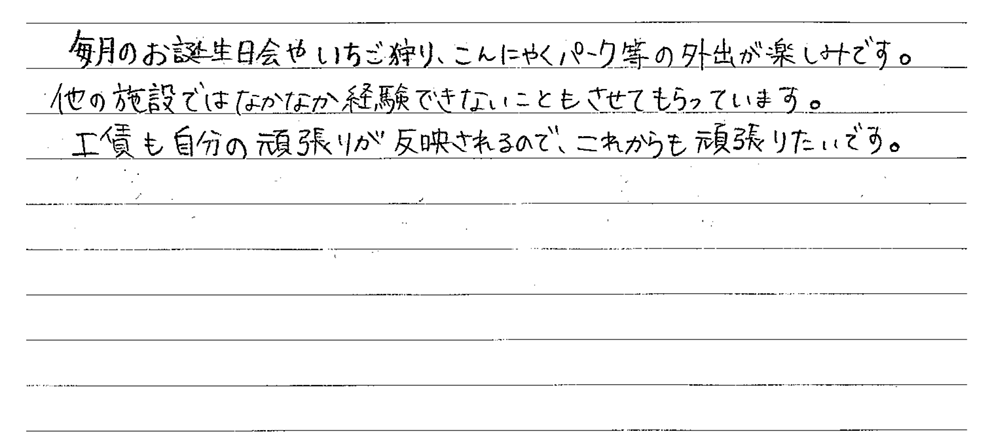 毎月のお誕生日会やいちご狩り、こんにゃくパーク等の外出が楽しみです。
他の施設ではなかなか経験できないこともさせてもらっています。
工賃も自分の頑張りが反映されるので、これからも頑張りたいです。